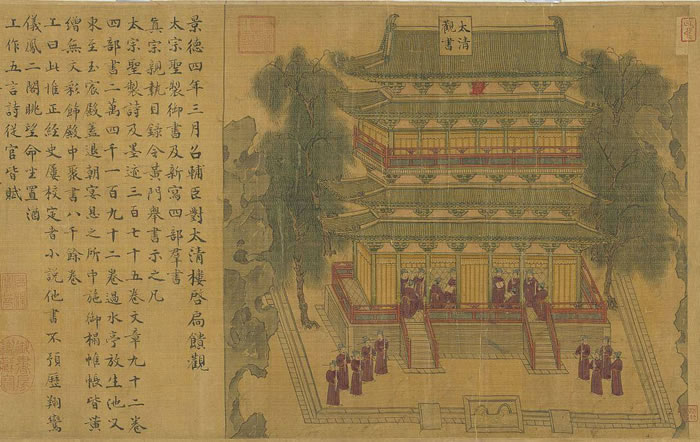 太清觀書
景德四年三月召輔臣對太清樓啓扃鐍觀
太宗聖製御書及新寫四部群書
真宗親執目錄令黃門舉書示之凡
太宗聖製詩及墨迹三百七十五卷文章九十二卷
四部書二萬四千一百九十二卷過水亭放生池又
東至玉宸殿蓋退朝宴息之所中施御榻帷帳皆黃
繒無文彩飾殿中聚書八千餘卷
上曰此惟正經史屢校定者小說他書不預歷翔鸞
儀鳳二閣眺望命坐置酒
上作五言詩從官皆賦